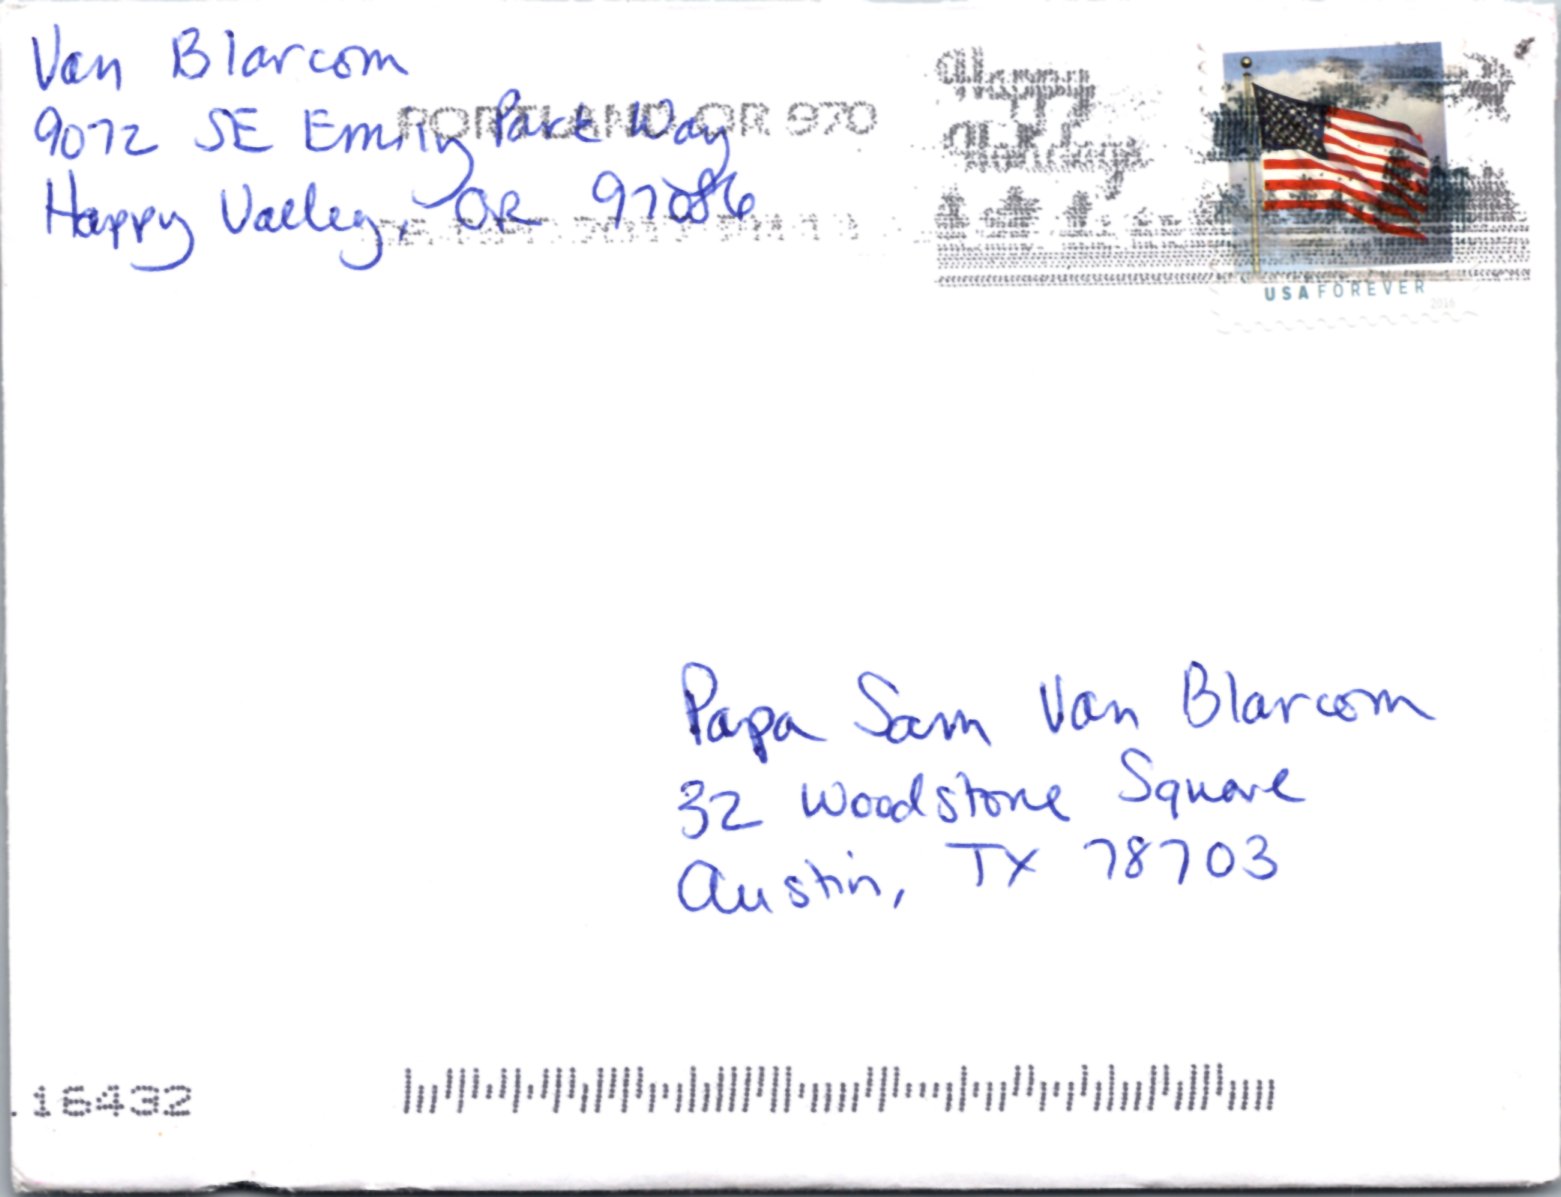 Van Blarcom
9072 SE Emily Park Way
Happy Valley, OR 97086
PORTLAND OR 970
Happy
Holidays
USA FOREVER
2016
Papa Sam Van Blarcom
32 Woodstone Square
Austin, TX 78703
16432